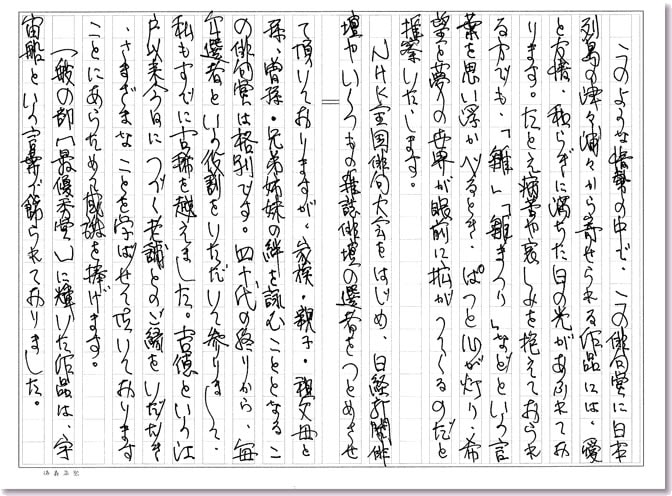 このような情勢の中で、この俳句賞に日本
列島の津々浦々から寄せられる作品には、愛
と友情、和らぎに満ちた日の光があふれてお
ります。たとえ病苦や哀しみを抱えておられ
る方でも、「雛」「雛まつり」などという言
葉を思い浮かべるとき、ぱっと心が灯り、希
望と夢の世界が眼前に拡がってくるのだと
推察いたします。
NHK全国俳句大会をはじめ、日経新聞俳
壇やいくつもの雑誌俳壇の選者をつとめさせ
て頂いておりますが、家族・親子・祖父母と
孫、曽孫・兄弟姉妹の絆を詠むこととなるこ
の俳句賞は格別です。四十代の終りから、毎
年選者という役割をいただいて参りまして、
私もすでに古稀を越えました。吉徳という江
戸以来今日につづく老舗とのご縁をいただき
、さまざまなことを学ばせて頂いております
ことにあらためて感謝を捧げます。
一般の部「最優秀賞」に輝いた作品は、宇
宙船という言葉で飾られておりました。